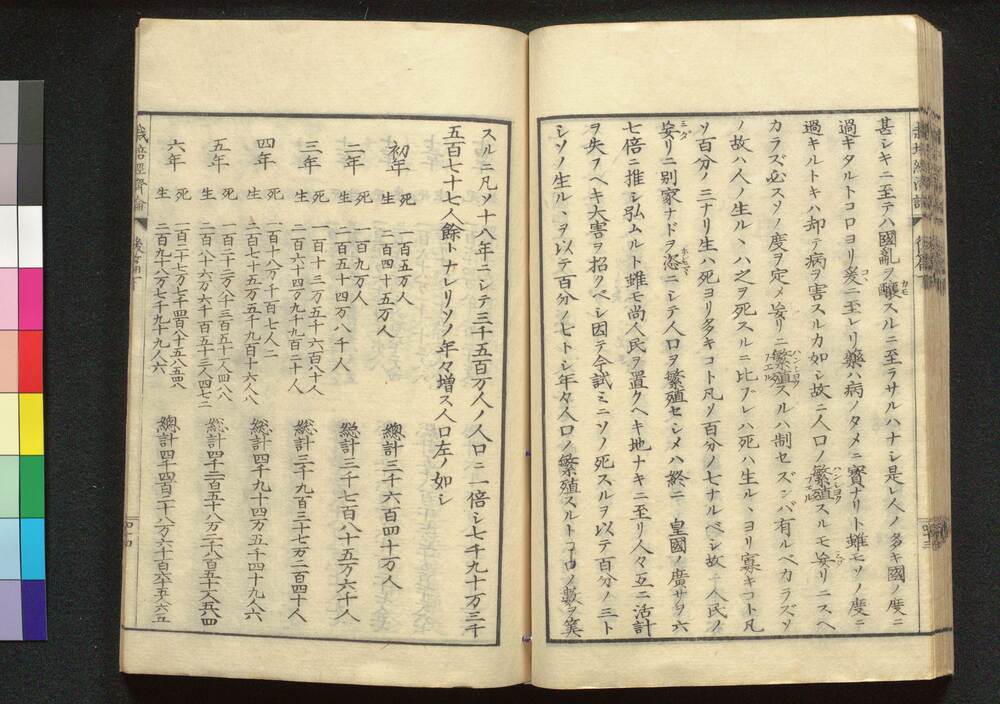 甚シキニ至テハ國亂ヲ釀スルニ至ラサルハナシ是レ人ノ多キ國ノ度ニ
過キタルトコロヨリ爰ニ至レリ藥ハ病ノタメニ寳ナリト雖モソノ度ニ
過キルトキハ却テ病ヲ害スルカ如シ故ニ人口ノ繁殖スルモ妄リニスヘ
カラズ必スソノ度ヲ定メ妄リニ繁殖スルハ制セズンバ有ルベカラズソ
ノ故ハ人ノ生ルヽハ之ヲ死スルニ比ブレハ死ハ生ルヽヨリ寡キコト凡
ソ百分ノ三ナリ生ハ死ヨリ多キコト凡ソ百分ノ七ナルベシ故ニ人民ノ
妄リニ別家ナドヲ恣ニシテ人口ヲ繁殖セシメハ終ニ 皇國ノ廣サヲ六
七倍ニ推シ弘ムルト雖モ尚人民ヲ置クヘキ地ナキニ至リ人々互ニ活計
ヲ失フヘキ大害ヲ招クベシ因テ今試ミニソノ死スルヲ以テ百分ノ三ト
シソノ生ルヽヲ以テ百分ノ七トシ年々人口ノ繁殖スルトコロノ數ヲ筭
スルニ凡ソ十八年ニシテ三千五百万人ノ人口ニ一倍シ七千九十万三千
五百七十七人餘トナレリソノ年々増ス人口左ノ如シ
初年 死 一百五万人
生 二百四十五万人 總計三千六百四十万人
二年 死 一百九万人
生 二百五十四万八千人 総計三千七百八十五万六千人
三年 死 一百十三万五千六百八十人
生 二百六十四万九千九百二十人 総計三千九百三十七万二百四十人
四年 死 一百十八万千百七人二
生 二百七十五万五千九百十六人八 総計四千九十四万五千四十九人六
五年 死 一百二十二万八千三百五十一人四八八
生 二百八十六万六千百五十三人四七二 総計四千二百五十八万二千八百五十一人五八四
六年 死 一百二十七万七千四百八十五人五四八
生 二百九十八万七百九十九人六 總計四千四百二十八万六千百六十五人六五
栽培經濟論 後篇 四十四
四十三